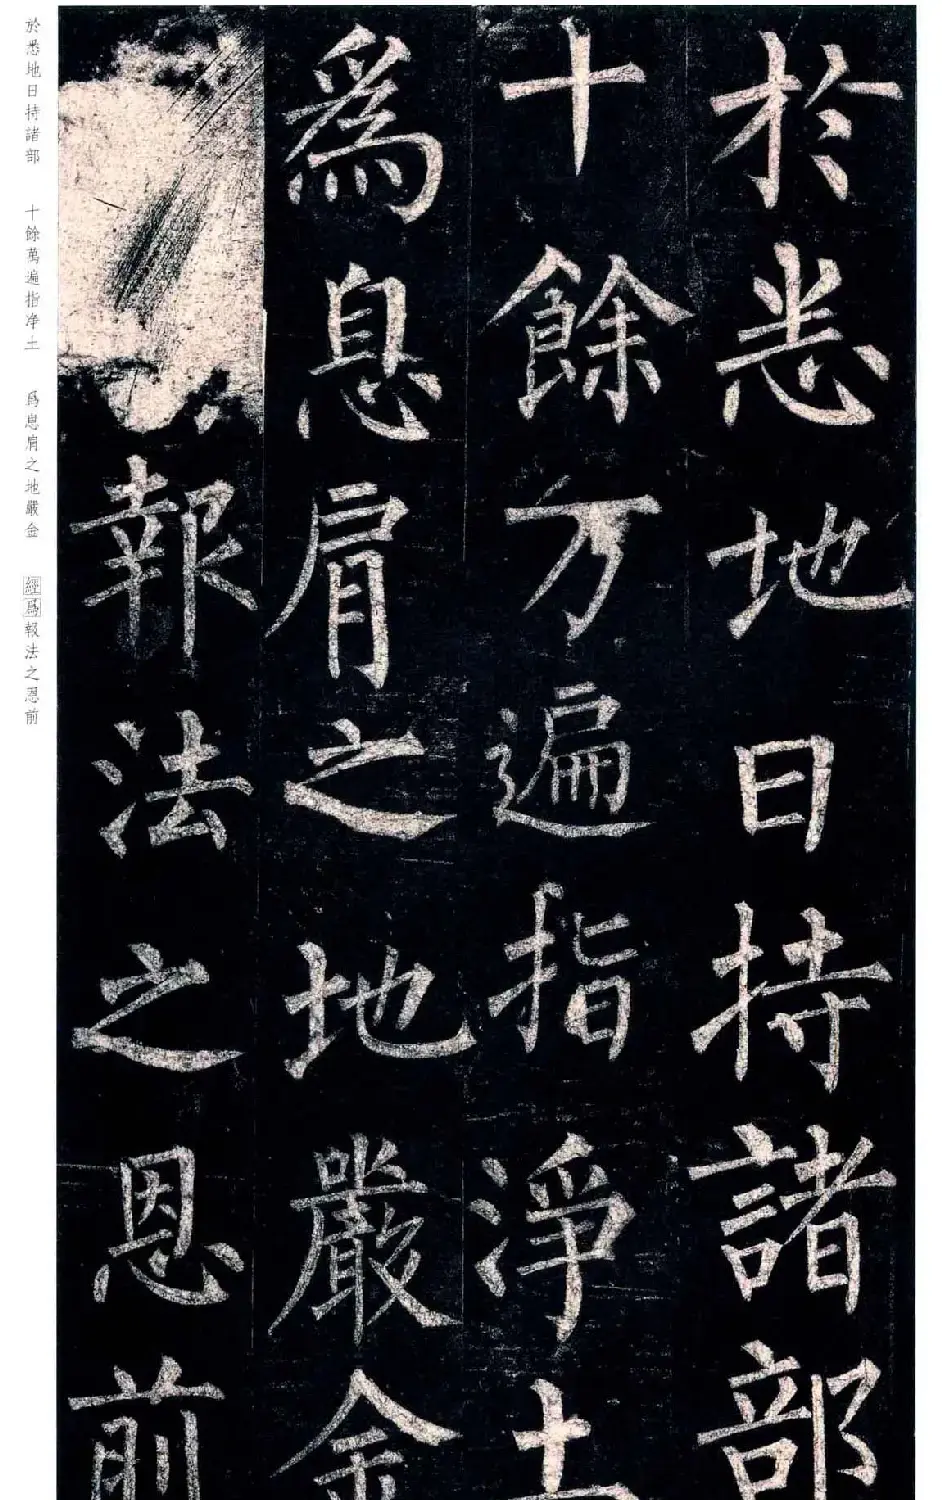 於悉地日持諸部
十餘万遍指淨土
為息肩之地嚴金
報法之恩前
於悉地日持諸部 十餘萬遍指净土 爲息肩之地嚴金 經爲報法之恩前